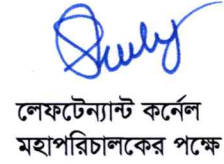 লেফটেন্যান্ট কর্নেল
মহাপরিচালকের পক্ষে